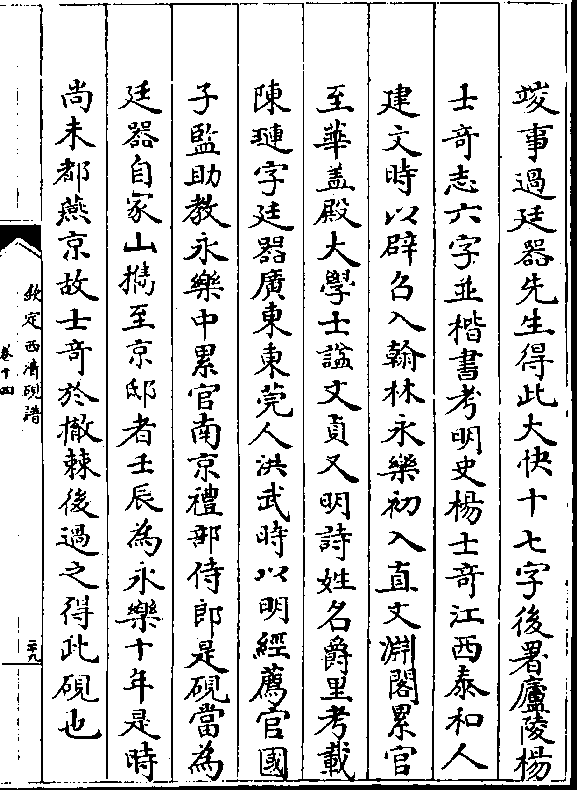 竣事過廷器先生得此大快十七字後署廬陵楊
士奇志六字並楷書考明史楊士奇江西泰和人
建文時以辟召入翰林永樂初入直文淵閣累官
至華盖殿大學士諡文貞又明詩姓名爵里考載
陳璉字廷器廣東東莞人洪武時以明經薦官國
子監助教永樂中累官南京禮部侍郎是硯當為
廷器自家山攜至京邸者壬辰為永樂十年是時
尚未都燕京故士奇於撤棘後過之得此硯也
欽定西清硯譜
卷十四
二十九